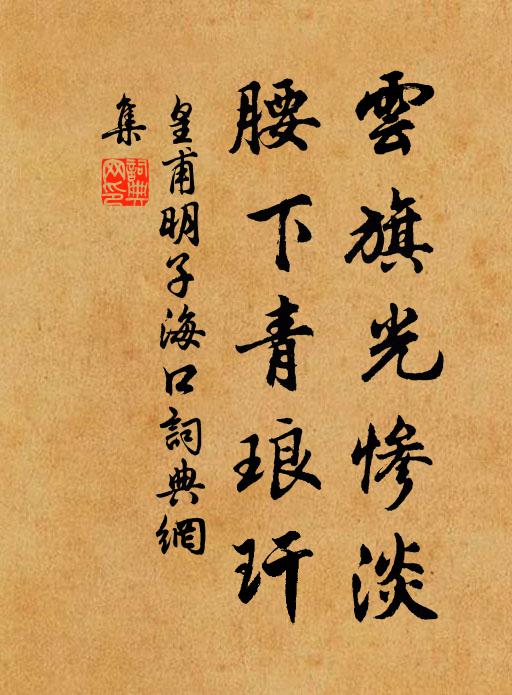 雲旗光慘淡
腰下青琅玕
皇甫明子海口詞典網
集
詞典
网印